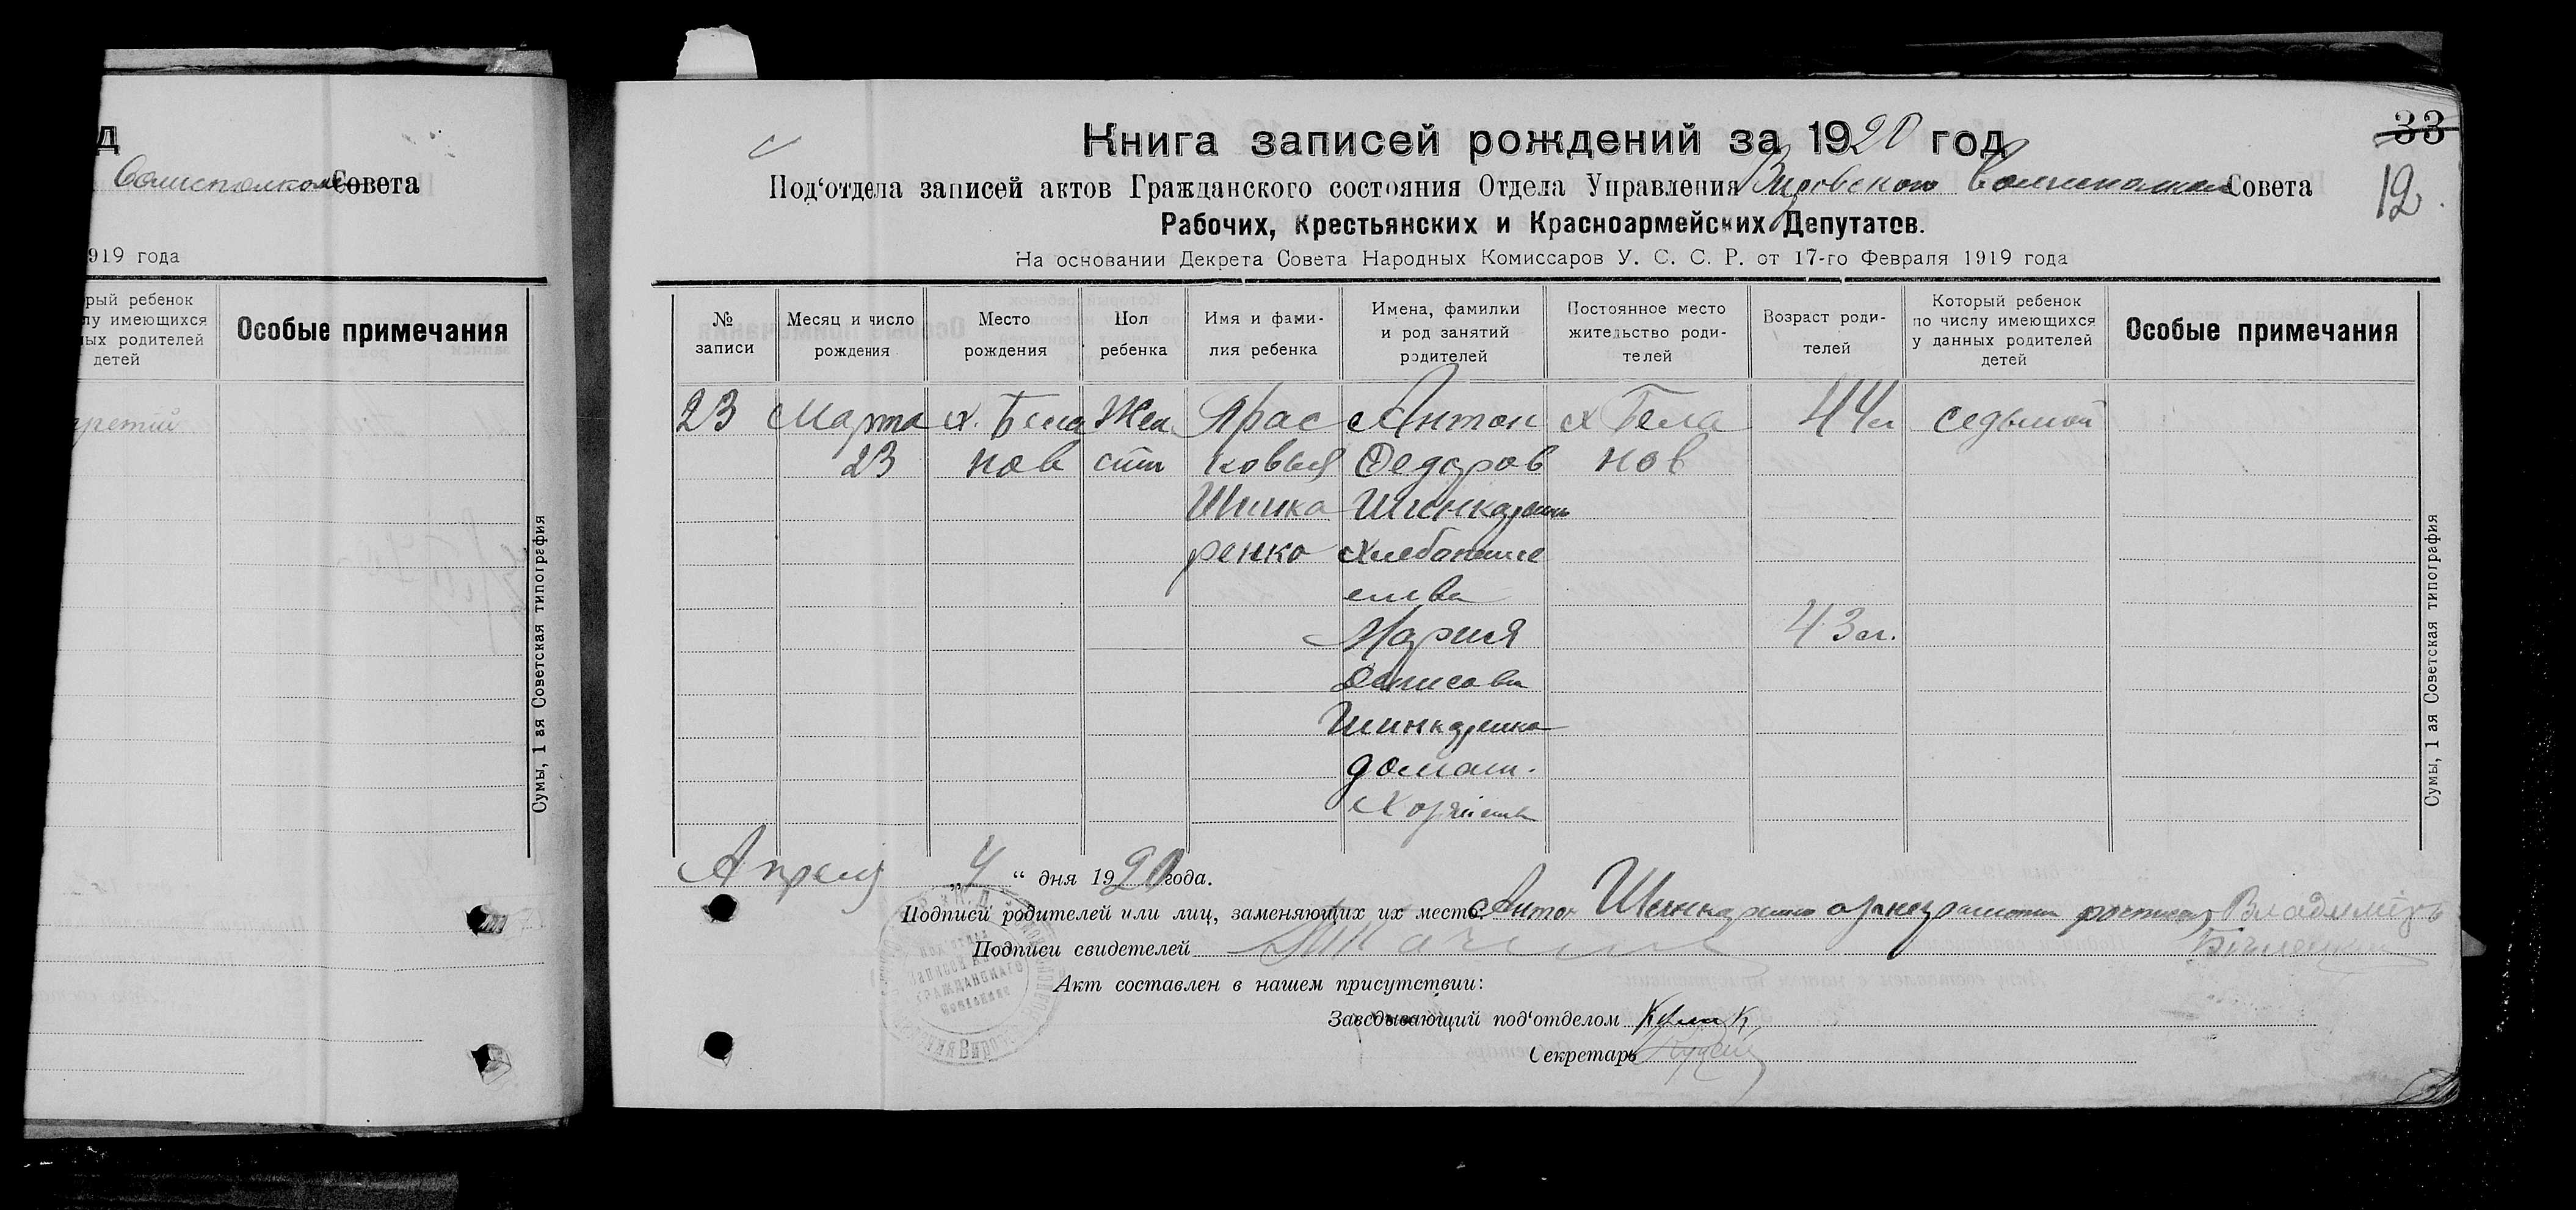 д
Волисполкома Совета
919 года
рый ребенок
лу имеющихся
ых родителей
детей
Особые примечания
третий
Сумы, 1 ая Советская типография
33
12
Книга записей рождений за 1920 год
Под'отдела записей актов Гражданского состояния Отдела Управления Вировского Волисполкома Совета
Рабочих, Крестьянских и Красноармейских Депутатов.
На основании Декрета Совета Народных Комиссаров У. С. С. Р. от 17-го Февраля 1919 года
№ записи
Месяц и число рождения
Место рождения
Пол ребенка
Имя и фами-
лия ребенка
Имена, фамилии
и род занятий
родителей
Постоянное место
жительство роди-
телей
Возраст роди-
телей
Который ребенок
по числу имеющихся
у данных родителей
детей
Особые примечания
23 Марта х. Бела Жен Прас Антон х Бела 44 л седьмой
23 нов ковья Федоров нов
Шинка Шинкаренко
ренко Хлебопаше
ство
Мария 43 л.
Денисова
Шинкаренко
домаш.
Хозяйство
Апреля „4“ дня 1920 года.
Подписи родителей или лиц, заменяющих их место: Антон Шинкаренко Владимiръ
Подписи свидетелей
Акт составлен в нашем присутствии:
Заведывающий под'отделом
Секретарь
Сумы, 1 ая Советская типография